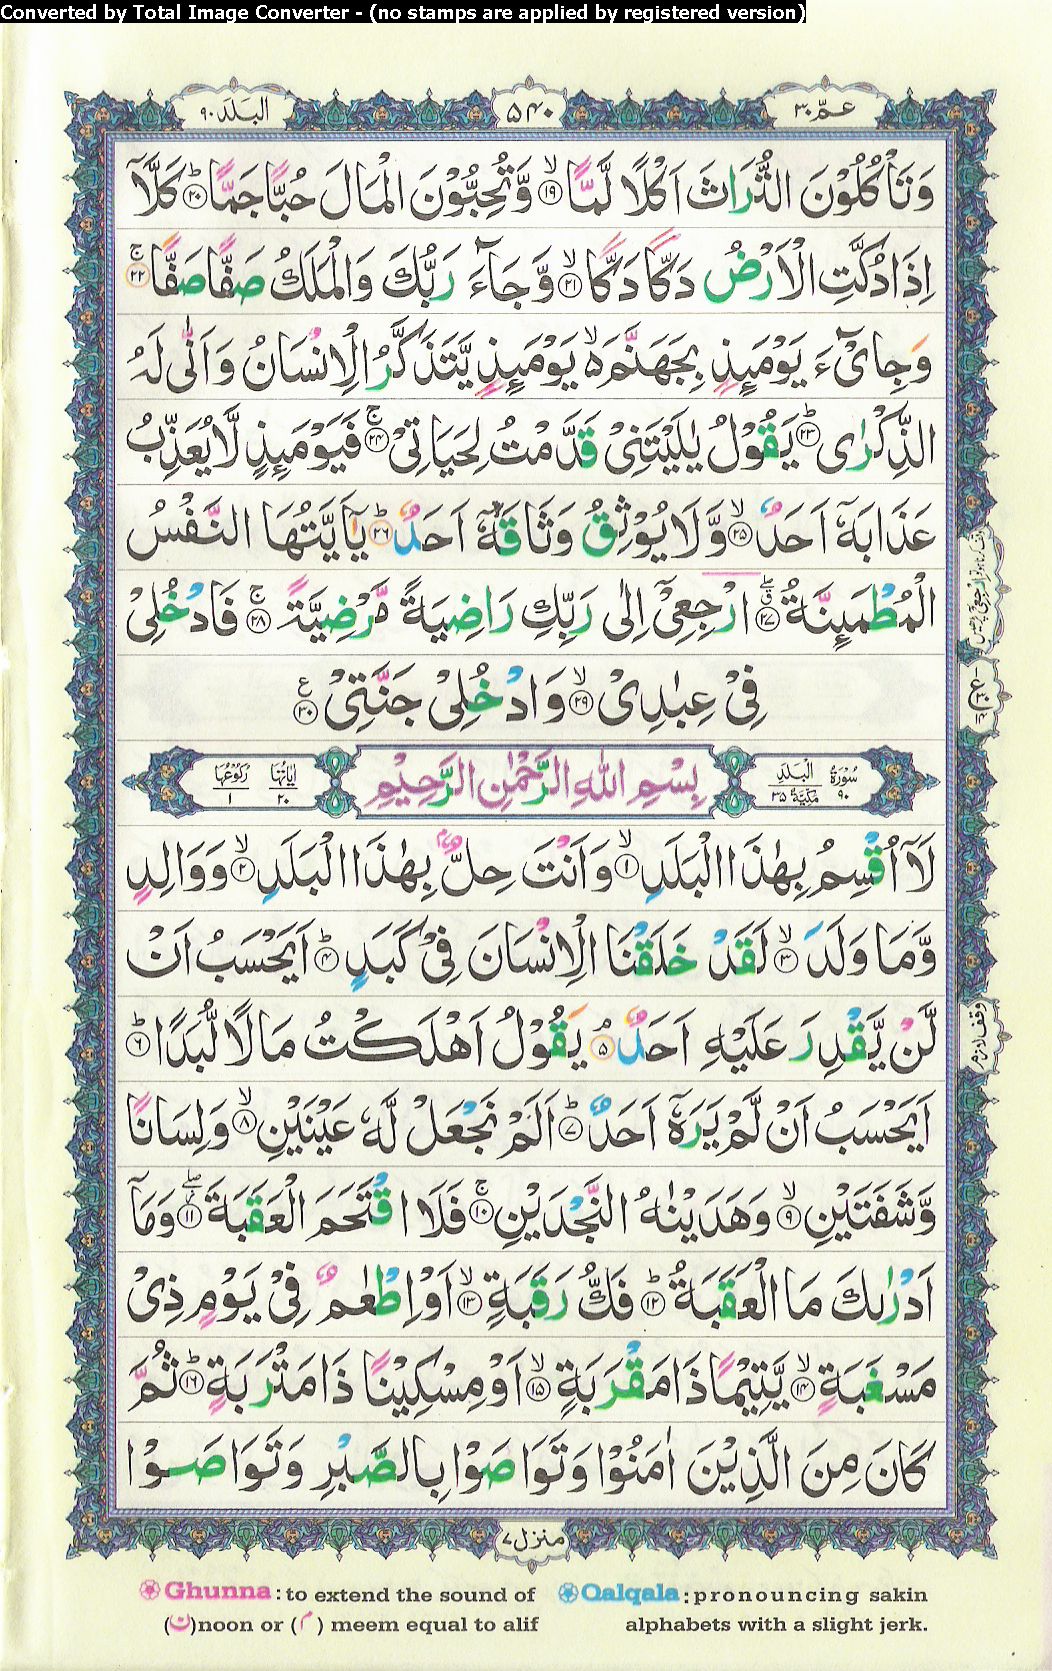 Converted by Total Image Converter - (no stamps are applied by registered version)
عمّ ٣٠
٥٤٠
البلد ٩٠
وَتَاْكُلُوْنَ التُّرَاثَ اَكْلًا لَّمًّا ۙ‏﴿۱۹﴾ وَّتُحِبُّوْنَ الْمَالَ حُبًّا جَمًّا ؕ‏﴿۲۰﴾ كَلَّاۤ
اِذَا دُكَّتِ الْاَرْضُ دَكًّا دَكًّا ۙ‏﴿۲۱﴾ وَّجَآءَ رَبُّكَ وَالْمَلَكُ صَفًّا صَفًّا ۚ‏﴿۲۲﴾
وَجِایْٓءَ يَوْمَئِذٍۭ بِجَهَنَّمَ ۙ يَوْمَئِذٍ يَّتَذَكَّرُ الْاِنْسَانُ وَاَنّٰى لَهُ
الذِّكْرٰى ؕ‏﴿۲۳﴾ يَقُوْلُ يٰلَيْتَنِىْ قَدَّمْتُ لِحَيَاتِىْ ۚ‏﴿۲۴﴾ فَيَوْمَئِذٍ لَّا يُعَذِّبُ
عَذَابَهٗۤ اَحَدٌ ۙ‏﴿۲۵﴾ وَّلَا يُوْثِقُ وَثَاقَهٗۤ اَحَدٌ ؕ‏﴿۲۶﴾ يٰۤاَيَّتُهَا النَّفْسُ
الْمُطْمَئِنَّةُ ۖ‏﴿۲۷﴾ ارْجِعِىْۤ اِلٰى رَبِّكِ رَاضِيَةً مَّرْضِيَّةً ۚ‏﴿۲۸﴾ فَادْخُلِىْ
فِىْ عِبٰدِىْ ۙ‏﴿۲۹﴾ وَادْخُلِىْ جَنَّتِىْ‏﴿۳۰﴾ ع
سُوْرَةُ الْبَلَدِ مَكِّيَّةٌ ٣٥ ٩٠
بِسْمِ اللّٰهِ الرَّحْمٰنِ الرَّحِيْمِ
اٰيَاتُهَا ٢٠ رُكُوْعُهَا ١
لَاۤ اُقْسِمُ بِهٰذَا الْبَلَدِ ۙ‏﴿۱﴾ وَاَنْتَ حِلٌّۢ بِهٰذَا الْبَلَدِ ۙ‏﴿۲﴾ وَوَالِدٍ
وَّمَا وَلَدَ ۙ‏﴿۳﴾ لَقَدْ خَلَقْنَا الْاِنْسَانَ فِىْ كَبَدٍ ؕ‏﴿۴﴾ اَيَحْسَبُ اَنْ
لَّنْ يَّقْدِرَ عَلَيْهِ اَحَدٌ ۘ‏﴿۵﴾ يَقُوْلُ اَهْلَكْتُ مَالًا لُّبَدًا ؕ‏﴿۶﴾
اَيَحْسَبُ اَنْ لَّمْ يَرَهٗۤ اَحَدٌ ؕ‏﴿۷﴾ اَلَمْ نَجْعَلْ لَّهٗ عَيْنَيْنِ ۙ‏﴿۸﴾ وَلِسَانًا
وَّشَفَتَيْنِ ۙ‏﴿۹﴾ وَهَدَيْنٰهُ النَّجْدَيْنِ ۚ‏﴿۱۰﴾ فَلَا اقْتَحَمَ الْعَقَبَةَ ۖ‏﴿۱۱﴾ وَمَاۤ
اَدْرٰىكَ مَا الْعَقَبَةُ ؕ‏﴿۱۲﴾ فَكُّ رَقَبَةٍ ۙ‏﴿۱۳﴾ اَوْ اِطْعٰمٌ فِىْ يَوْمٍ ذِىْ
مَسْغَبَةٍ ۙ‏﴿۱۴﴾ يَّتِيْمًا ذَا مَقْرَبَةٍ ۙ‏﴿۱۵﴾ اَوْ مِسْكِيْنًا ذَا مَتْرَبَةٍ ؕ‏﴿۱۶﴾ ثُمَّ
كَانَ مِنَ الَّذِيْنَ اٰمَنُوْا وَتَوَاصَوْا بِالصَّبْرِ وَتَوَاصَوْا
وقف لازم
منزل ٧
Ghunna: to extend the sound of
(ن)noon or (م) meem equal to alif
Qalqala: pronouncing sakin
alphabets with a slight jerk.